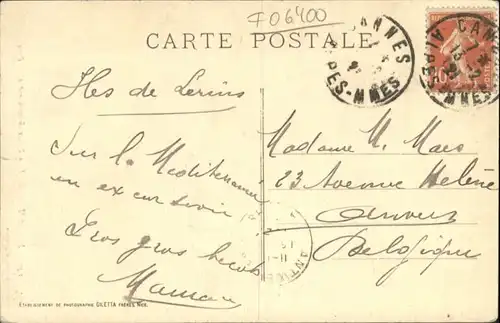 F06400
CARTE POSTALE
CANNES
ALPES-MMES
CANNES
ALPES-MMES
Iles de Lerins
Sur la Mediterranée
en excursion
Gros gros
Maman
Madame M. Maes
23 Avenue Helène
Anvers
Belgique
ETABLISSEMENT DE PHOTOGRAPHIE GILETTA FRÈRES, NICE.